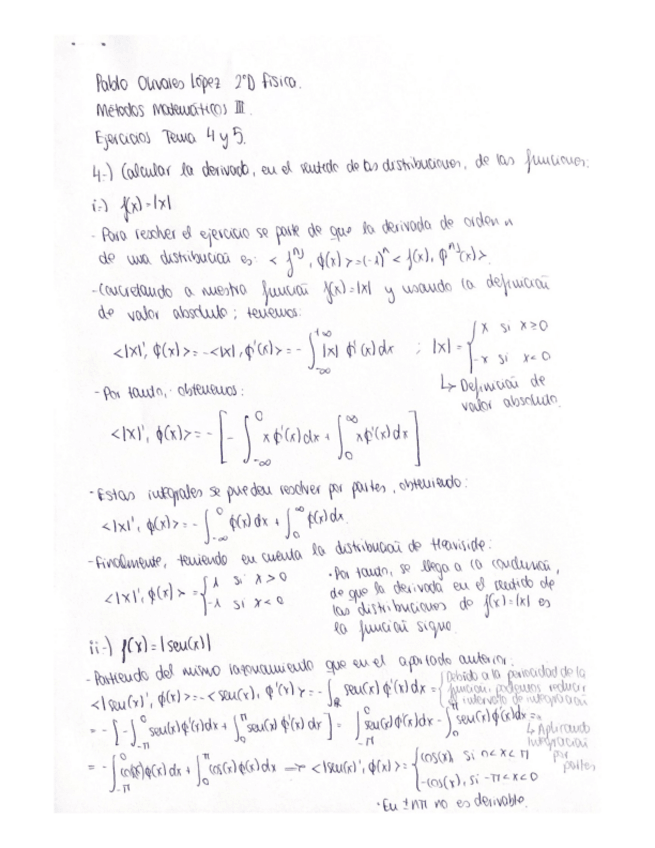 Pablo Olivares López 2ºD Física.
Métodos Matemáticos III.
Ejercicios Tema 4 y 5.
4.-) Calcular la derivada, en el sentido de las distribuciones, de las funciones:
i.-) f(x)=|x|
- Para resolver el ejercicio se parte de que la derivada de orden n
de una distribución es: < f^(n), ϕ(x) > = (-1)^n < f(x), ϕ^(n)(x) >.
- Concretando a nuestra función f(x)=|x| y usando la definición
de valor absoluto; tenemos:
<|x|', ϕ(x)> = - <|x|, ϕ'(x)> = - ∫_{-∞}^{+∞} |x| ϕ'(x) dx ; |x| = { x si x≥0
-x si x<0
↳ Definición de
valor absoluto.
- Por tanto, obtenemos:
<|x|', ϕ(x)> = - [ - ∫_{-∞}^{0} x ϕ'(x) dx + ∫_{0}^{∞} x ϕ'(x) dx ]
- Estas integrales se pueden resolver por partes, obteniendo:
<|x|', ϕ(x)> = - ∫_{-∞}^{0} ϕ(x) dx + ∫_{0}^{∞} ϕ(x) dx.
- Finalmente, teniendo en cuenta la distribución de Heaviside:
<|x|', ϕ(x)> = { 1 si x>0
-1 si x<0
· Por tanto, se llega a la conclusión,
de que la derivada en el sentido de
las distribuciones de f(x)=|x| es
la función signo.
ii.-) f(x)=|sen(x)|
- Partiendo del mismo razonamiento que en el apartado anterior:
<|sen(x)|', ϕ(x)> = - <sen(x), ϕ'(x)> = - ∫_ℝ sen(x) ϕ'(x) dx = { Debido a la periocidad de la
función, podemos reducir
intervalo de integración
= - [ - ∫_{-π}^{0} sen(x) ϕ'(x) dx + ∫_{0}^{π} sen(x) ϕ'(x) dx ] = ∫_{-π}^{0} sen(x) ϕ'(x) dx - ∫_{0}^{π} sen(x) ϕ'(x) dx =
↳ Aplicando
integración
por
partes
= - ∫_{-π}^{0} cos(x) ϕ(x) dx + ∫_{0}^{π} cos(x) ϕ(x) dx → <|sen(x)|', ϕ(x)> = { cos(x), si 0<x<π
-cos(x), si -π<x<0
· En ±nπ no es derivable.